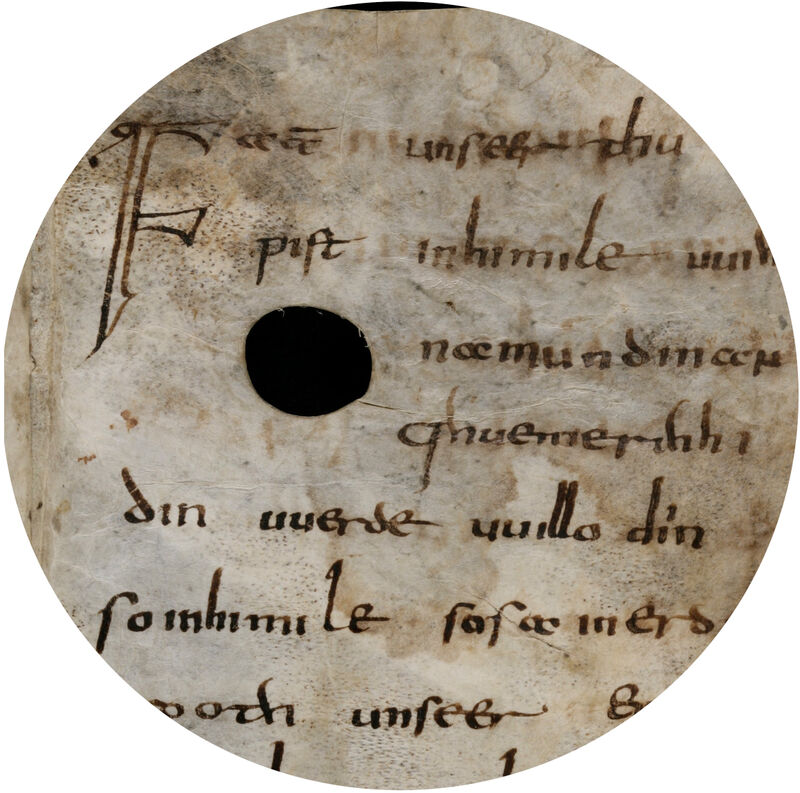 Fat unseer thu
pist inhimile uuih
namun dinan
qhueme rihhi
din uuerde uuillo diin
so inhimile sosa in erd
ooth unseer